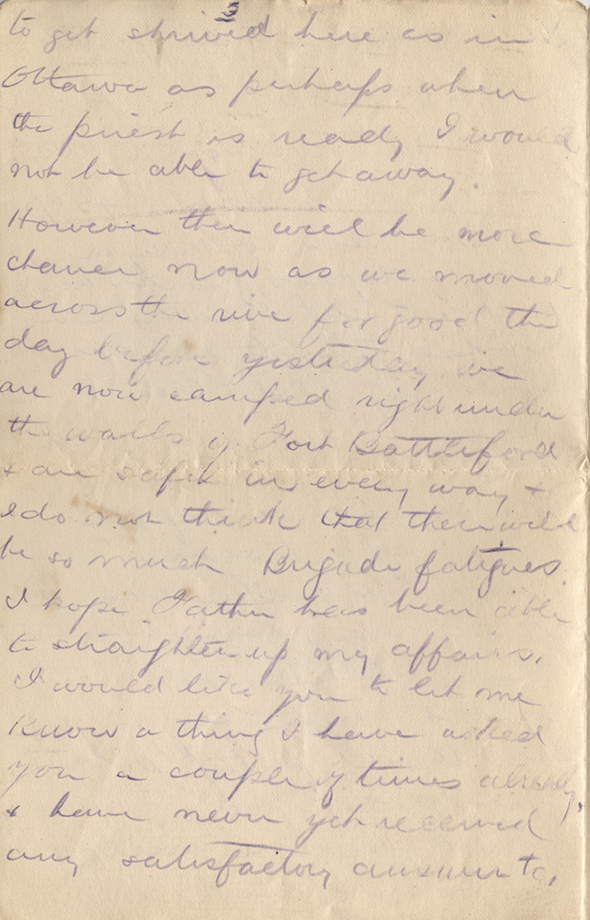 3
to get shrived here as in
Ottawa as perhaps when
the priest is ready I would
not be able to get away.
However there will be more
chance now as we moved
across the river for good the
day before yesterday we
are now camped right under
the walls of Fort Battleford
& are safer in every way &
I do not think that there will
be so much Brigade fatigues.
I hope Father has been able
to straighten up my affairs.
I would like you to let me
know a thing I have asked
you a couple of times already,
& have never yet received
any satisfactory answer to,